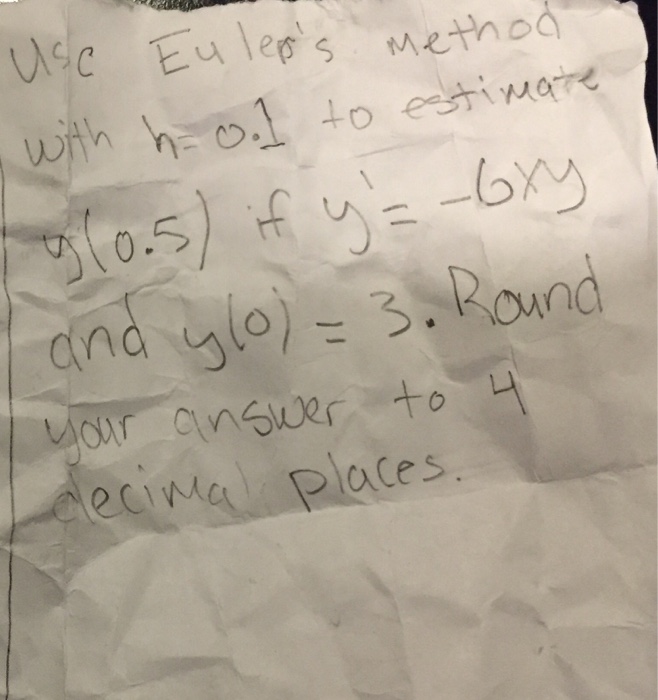 Use Euler's method
with h=0.1 to estimate
y(0.5) if y'= -6xy
and y(0) = 3. Round
your answer to 4
decimal places.